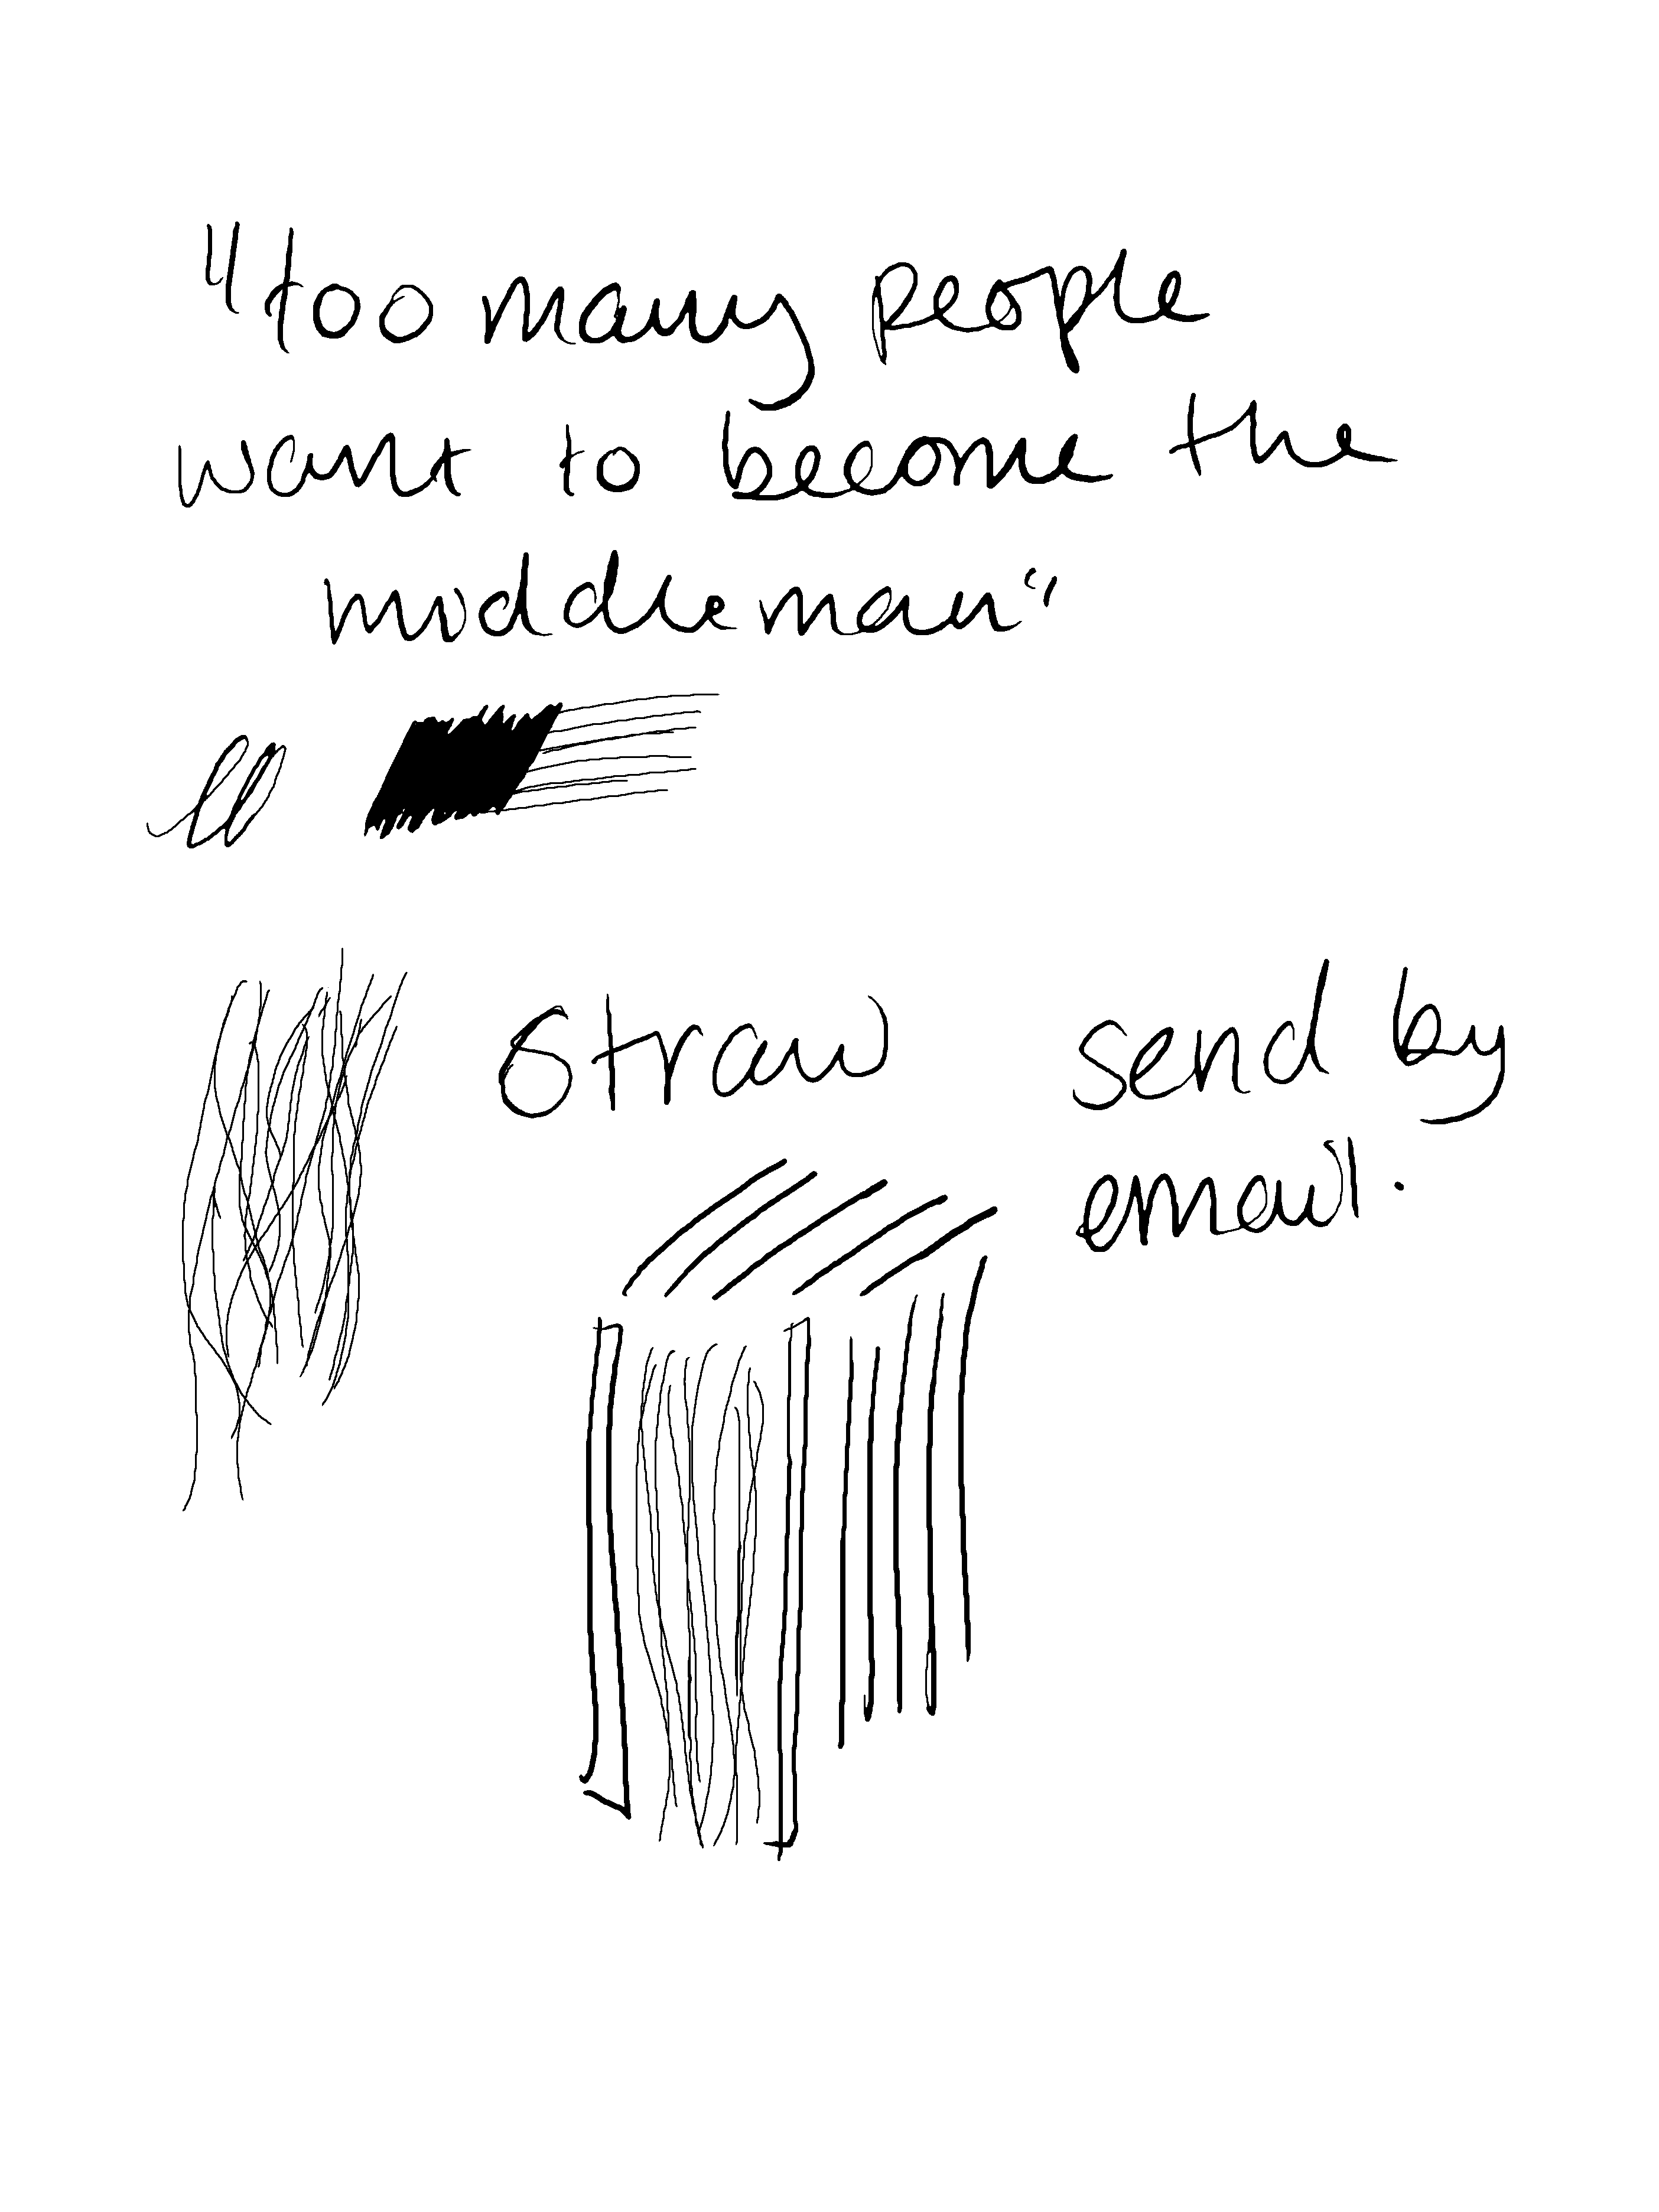 "too many people
want to become the
middleman"
straw send by
email.